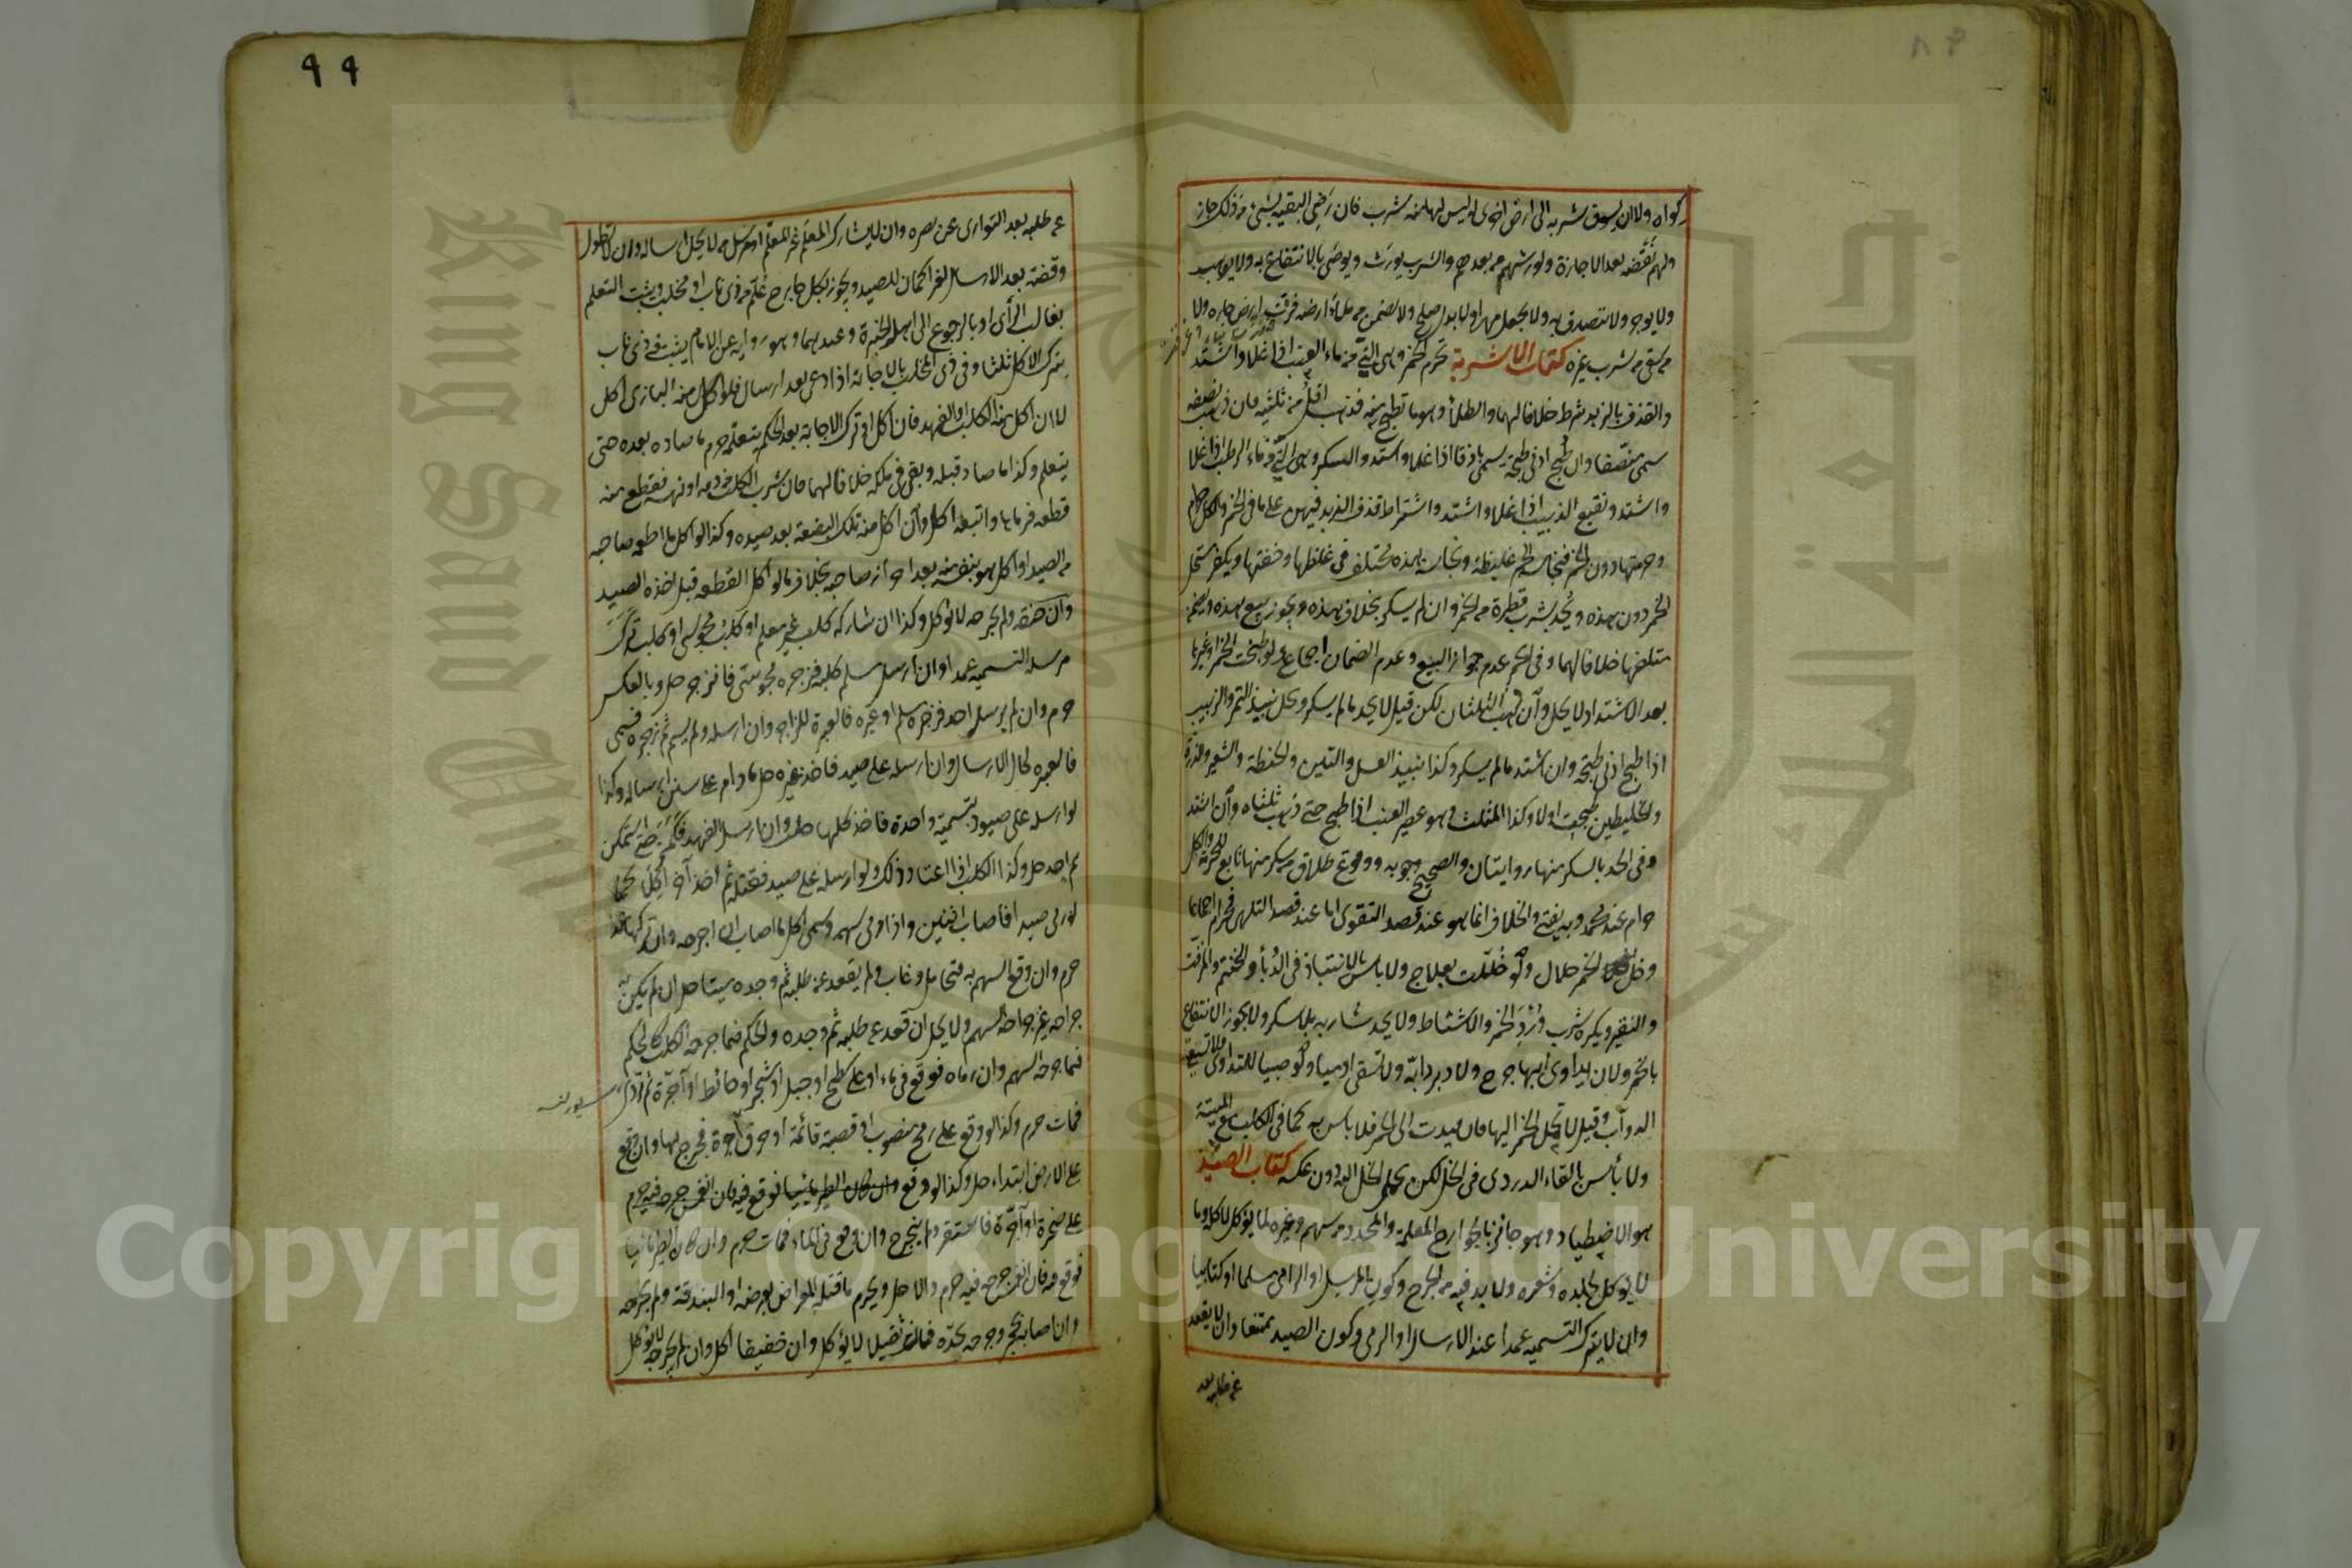 كواه ولا ان يسوق شربه الى ارض اخرى له ليس لها منه شرب فان رضى البقية بشئ من ذلك جاز
ولهم نقضه بعد الاجازة ولورثتهم من بعدهم والشرب يورث ويوصى بالانتفاع به ولا يوهب
ولا يوجر ولا يتصدق به ولا يجعل مهرا ولا بدل صلح ولا يضمن من ملأ ارضه فنزت ارض جاره ولا
من سقى من شرب غيره كتاب الاشربة تحرم الخمر وهى التى من ماء العنب اذا غلا واشتد
والقذف بالزبد شرط خلافا لهما والطلاء وهو ما طبخ منه فذهب اقل من ثلثيه فان ذهب نصفه
سمى منصفا وان طبخ ادنى طبخة يسمى باذقا اذا غلا واشتد والسكر وهى التى من ماء الرطب اذا غلا
واشتد ونقيع الزبيب اذا غلا واشتد واشتراط قذف الزبد فيهن على ما فى الخمر والكل حرام
وحرمتها دون الخمر فنجاسة الخمر غليظة ونجاسة هذه مختلف فى غلظها وخفتها ويكفر مستحل
الخمر دون هذه ويحد بشرب قطرة من الخمر وان لم يسكر بخلاف هذه ويجوز بيع هذه ويضمن
متلفها خلافا لهما وفى الخمر عدم جواز البيع وعدم الضمان اجماعا ولو طبخت الخمر او غيرها
بعد الاشتداد لا يحل وان ذهب الثلثان لكن قيل لا يحد ما لم يسكر ويحل نبيذ التمر والزبيب
اذا طبخ ادنى طبخة وان اشتد ما لم يسكر وكذا نبيذ العسل والتين والحنطة والشعير والذرة
والخليطين طبخت اولا وكذا المثلث وهو عصير العنب اذا طبخ حتى ذهب ثلثاه وان اشتد
وفى الحد بالسكر منها روايتان والصحيح وجوبه ووقوع طلاق من سكر منها تابع للحرمة والكل
حرام عند محمد وبه يفتى والخلاف انما هو عند قصد التقوى اما عند قصد التلهى فحرام اجماعا
وخل الخمر حلال ولو خللت بعلاج ولا بأس بالانتباذ فى الدباء والحنتم والمزفت
والنقير ويكره شرب دردى الخمر والامتشاط ولا يحد شاربه بلا سكر ولا يجوز الانتفاع
بالخمر ولا ان يداوى بها جرح ولا دبر دابة ولا تسقى ادميا ولو صبيا للتداوى ولا تسقى
الدواب وقيل لا تحمل الخمر اليها فان قيدت الى الخمر فلا باس به كما فى الكلب مع الميتة
ولا بأس بالقاء الدردى فى الخل لكن يحمل الخل اليه دون عكسه كتاب الصيد
هو الاصطياد وهو جائز بالجوارح المعلمة والمحدد من سهم وغيره لما يؤكل لاكله وما
لا يؤكل لجلده وشعره ولا بد فيه من الجرح وكون المرسل او الرامى مسلما او كتابيا
وان لا يترك التسمية عمدا عند الارسال او الرمى وكون الصيد ممتنعا وان لا يقعد
عن طلبه بعد
٩٩
عن طلبه بعد التوارى عن بصره وان لا يشارك المعلم غير المعلم او مرسل من لا يحل ارساله وان لا تطول
وقفته بعد الارسال لغير اكمان للصيد ويجوز بكل جارح علم من ذى ناب او مخلب ويثبت التعلم
بغالب الرأى او بالرجوع الى اهل الخبرة وعندهما وهو رواية عن الامام يثبت فى ذى ناب
بترك الاكل ثلثا وفى ذى المخلب بالاجابة اذا دعى بعد ارسال فلو اكل منه البازى اكل
لا ان اكل منه الكلب او الفهد فان اكل او ترك الاجابة بعد الحكم بتعلمه حرم ما صاده بعده حتى
يتعلم وكذا ما صاد قبله وبقى فى ملكه خلافا لهما فان شرب الكلب من دمه او نهسه فقطع منه
قطعه فرماها واتبعه اكل وان اكل منه تلك البضعة بعد صيده وكذا لو اكل ما اطعمه صاحبه
من الصيد او اكل هو بنفسه منه بعد احراز صاحبه بخلاف ما لو اكل القطعه قبل اخذه الصيد
وان خنقه ولم يجرحه لا يؤكل وكذا ان شاركه كلب غير معلم او كلب مجوسى او كلب ترك
مرسله التسمية عمدا وان ارسل مسلم كلبه فزجره مجوسى فانزجر حل وبالعكس
حرم وان لم يرسله احد فزجره مسلم او غيره فالعبرة للزاجر وان ارسله ولم يسم ثم زجره فسمى
فالعبرة لحال الارسال وان ارسله على صيد فاخذ غيره حل ما دام على سنن ارساله وكذا
لو ارسله على صيود بتسمية واحدة فاخذ كلها حل وان ارسل الفهد فكمن حتى استمكن
ثم اخذ حل وكذا الكلب اذا اعتاد ذلك ولو ارسله على صيد فقتله ثم اخذ آخر اكلا كما
لو رمى صيدا فاصاب اثنين واذا رمى سهمه وسمى اكل ما اصاب ان جرحه وان تركها عمدا
حرم وان وقع السهم به فتحامل وغاب ولم يقعد عن طلبه ثم وجده ميتا حل ان لم يكن به
جراحة غير جراحة السهم ولا يحل ان قعد عن طلبه ثم وجده والحكم فيما جرحه الكلب كالحكم
فيما جرحه السهم وان رماه فوقع فى ماء او على سطح او جبل او شجر او حائط او آجرة ثم تردى
فمات حرم وكذا لو وقع على رمح منصوب او قصبة قائمة او حرف آجرة فجرح بها وان وقع
على الارض ابتداء حل وكذا لو وقع
على صخرة او آجرة فاستقر ولم ينجرح وان وقع فى الماء فمات حرم وان كان الطير مائيا
فوقع فيه فان انغمس جرحه فيه حرم والا حل ويحرم ما قتله المعراض بعرضه او البندقة ولم يجرحه
وان اصابه حجر وجرحه بحده فان ثقيلا لا يؤكل وان خفيفا اكل وان لم يجرحه لا يؤكل
King Saud University
جامعة الملك سعود
Copyright © King Saud University